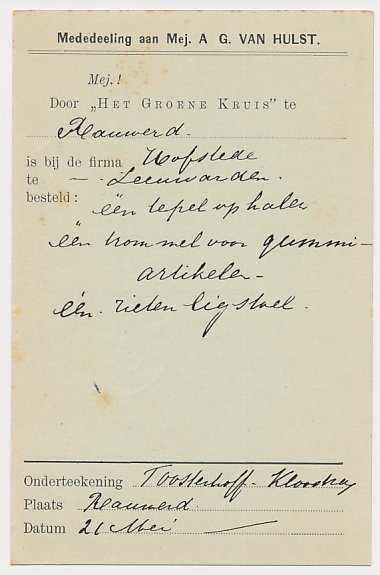 Mededeeling aan Mej. A G. VAN HULST.
Mej.!
Door „HET GROENE KRUIS” te
Rauwerd.
is bij de firma Hofstede
te - Leeuwarden.
besteld:
één lepel ophaler
één trommel voor gummi-
artikelen -
één. rieten ligstoel.
Onderteekening
Plaats Rauwerd.
Datum 21 Mei